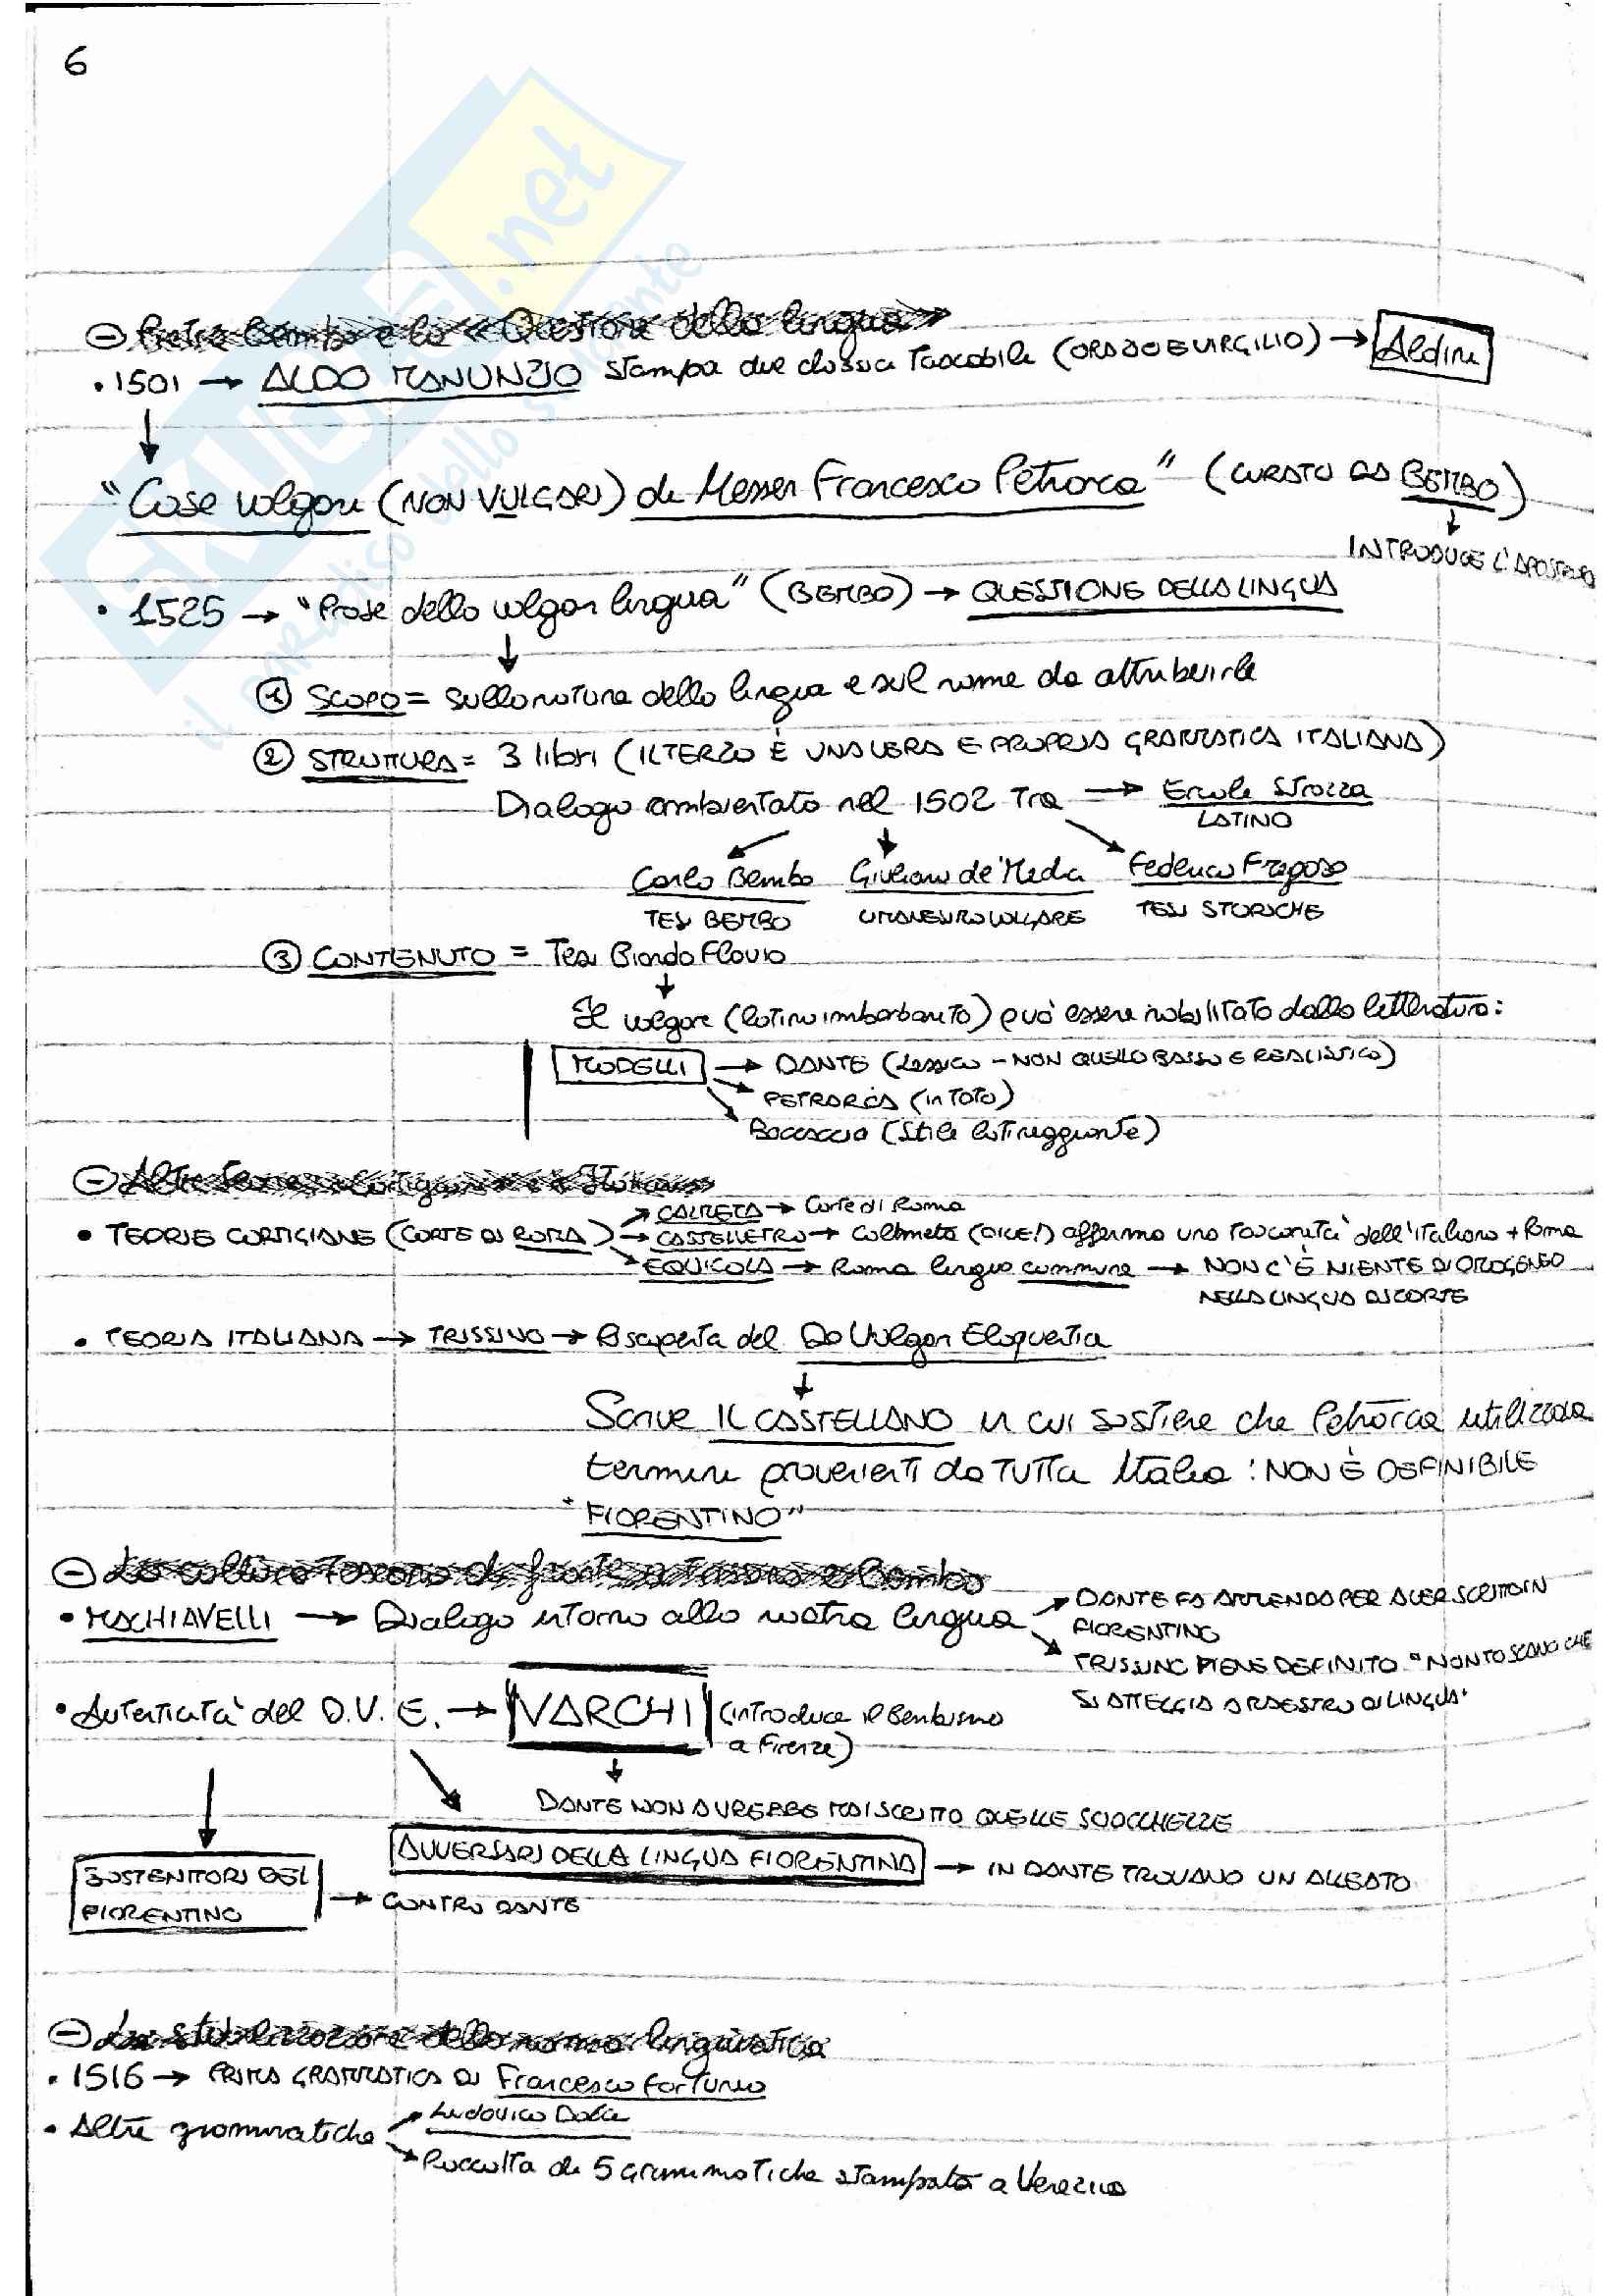 6
SKUOLA.net
il paradiso dello studente
⊖ Pietro Bembo e la «Questione della lingua»
• 1501 → ALDO MANUNZIO stampa due classici tascabili (ORAZIO E VIRGILIO) → Aldini
↓
"Cose volgari (NON VULGARI) di Messer Francesco Petrarca" (CURATO DA BEMBO)
↓
INTRODUCE L'APOSTROFO
• 1525 → "Prose della volgar lingua" (BEMBO) → QUESTIONE DELLA LINGUA
↓
① SCOPO = sulla natura della lingua e sul nome da attribuirle
② STRUTTURA = 3 libri (IL TERZO È UNA VERA E PROPRIA GRAMMATICA ITALIANA)
Dialogo ambientato nel 1502 Tra → Ercole Strozza
LATINO
Carlo Bembo Giuliano de' Medici Federico Fregoso
TESI BEMBO UMANESIMO VOLGARE TESI STORICHE
③ CONTENUTO = Tesi Biondo Flavio
↓
Il volgare (latino imbarbarito) può essere nobilitato dalla letteratura:
MODELLI → DANTE (Lessico - NON QUELLO BASSO E REALISTICO)
→ PETRARCA (in TOTO)
→ Boccaccio (Stile latineggiante)
⊖ Altre teorie: cortigiana e italiana
• TEORIE CORTIGIANE (CORTE DI ROMA) → CALMETA → Corte di Roma
→ CASTELVETRO → Calmeta (DICE!) afferma una toscanità dell'italiano + Roma
→ EQUICOLA → Roma lingua commune → NON C'È NIENTE DI OROGENEO
NELLA LINGUA DI CORTE
• TEORIA ITALIANA → TRISSINO → Riscoperta del De Vulgari Eloquentia
↓
Scrive IL CASTELLANO in cui sostiene che Petrarca utilizzava
termini provenienti da TUTTA Italia: NON È DEFINIBILE
"FIORENTINO"
⊖ La cultura toscana di fronte a Trissino e Bembo
• MACHIAVELLI → Dialogo intorno alla nostra lingua → DANTE FA AMMENDA PER AVER SCRITTO IN
FIORENTINO
→ TRISSINO VIENE DEFINITO "NON TOSCANO CHE
SI ATTEGGIA A MAESTRO DI LINGUA"
• Autenticità del D.V.E. → VARCHI (introduce il Bembismo
a Firenze)
↓
DANTE NON AVREBBE MAI SCRITTO QUELLE SCIOCCHEZZE
AVVERSARI DELLA LINGUA FIORENTINA → IN DANTE TROVANO UN ALLEATO
SOSTENITORI DEL
FIORENTINO → CONTRO DANTE
⊖ La stabilizzazione della norma linguistica
• 1516 → PRIMA GRAMMATICA DI Francesco Fortunio
• Altre grammatiche → Ludovico Dolce
→ Raccolta di 5 Grammatiche stampata a Venezia